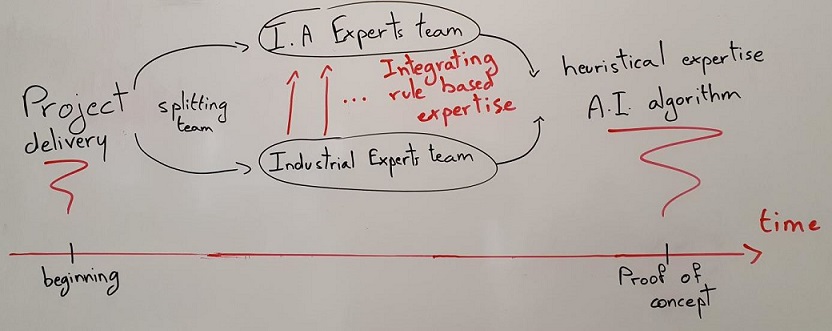 Project
delivery
splitting
team
I.A Experts team
Integrating
rule based
expertise
...
Industrial Experts team
heuristical expertise
A.I. algorithm
time
beginning
Proof of
concept